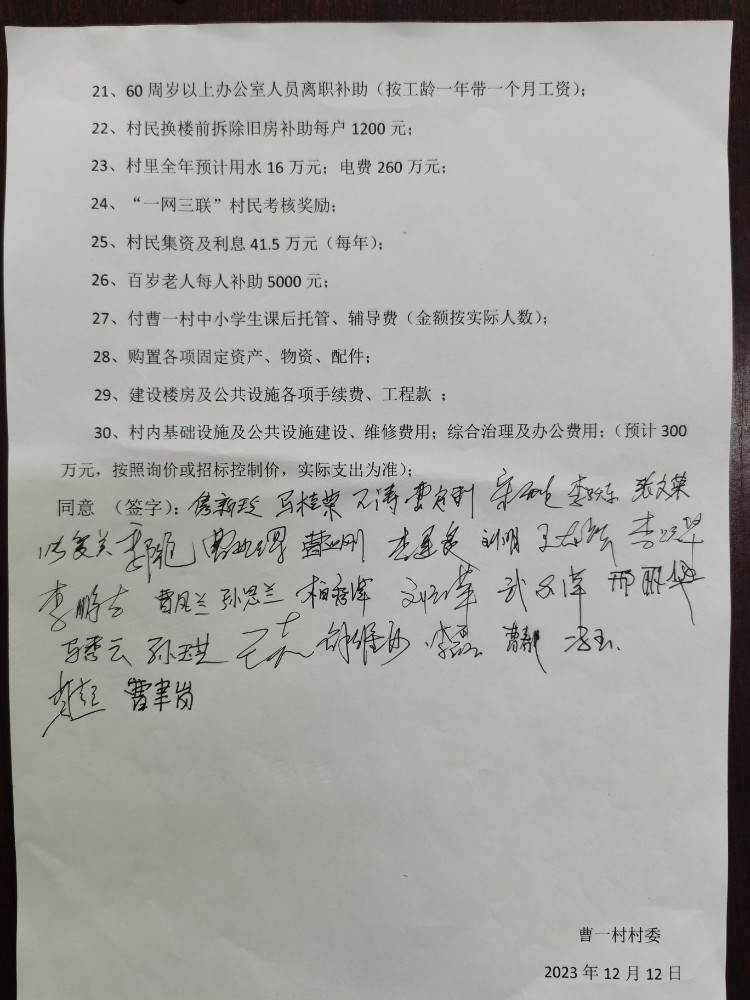 21、60 周岁以上办公室人员离职补助（按工龄一年带一个月工资）；
22、村民换楼前拆除旧房补助每户 1200 元；
23、村里全年预计用水 16 万元；电费 260 万元；
24、“一网三联”村民考核奖励；
25、村民集资及利息 41.5 万元（每年）；
26、百岁老人每人补助 5000 元；
27、付曹一村中小学生课后托管、辅导费（金额按实际人数）；
28、购置各项固定资产、物资、配件；
29、建设楼房及公共设施各项手续费、工程款 ；
30、村内基础设施及公共设施建设、维修费用；综合治理及办公费用；（预计 300
万元，按照询价或招标控制价，实际支出为准）；
同意 （签字）：马桂荣 张文荣
刘明
李鹏 曹凤兰 孙思兰 邢丽华
李秀云 孙琪 李磊 冯玉
曹聿岗
曹一村村委
2023 年 12 月 12 日